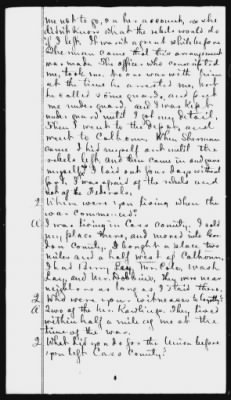 me not to go, on her account, as she
didn't know what the rebels would do
if I left. It wasn't a great while before
Sherman came that this arrangement
was made. The officer who conscripted
me, took me.
at the time he arrested me, but
he called some guards, and put
me under guard, and I was kept
under guard until I got my detail.
Then I went to the Depot, and
went to Calhoun. When Sherman
came I hid myself out until the
rebels left, and then came in and gave
myself up. I laid out four days without
food. I was afraid of the rebels and
not of the Federals.
Q Where were you living when the
war commenced?
A I was living in Cass County. I sold
my place there, and moved into Gor-
don County. I bought a place two
miles and a half west of Calhoun.
I had Berry
Lay, and Mr. They were near
neighbors as long as I staid there.
Q Who were your witnesses to loyalty?
A Two of the Mr. Rawlings. They lived
within half a mile of me at the
time of the war.
Q What did you do for the Union before
you left Cass County?